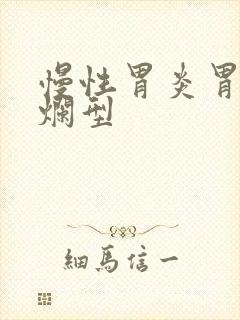 慢性胃炎胃
烂型
細馬信一